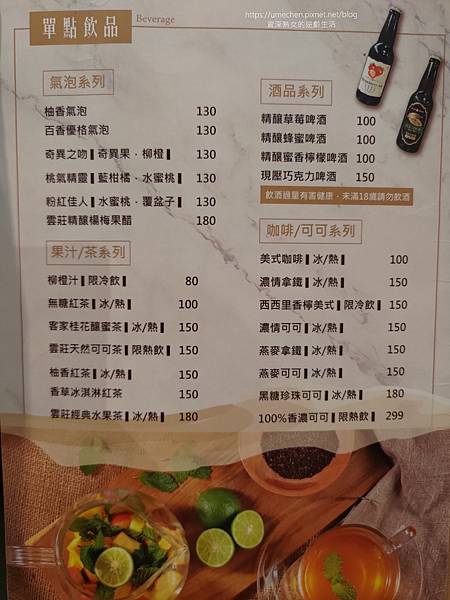 https://umechen.pixnet.net/blog
資深熟女的逆齡生活
單點飲品
Beverage
氣泡系列
柚香氣泡 130
百香優格氣泡 130
奇異之吻▐ 奇異果．柳橙▐ 130
桃氣精靈▐ 藍柑橘．水蜜桃▐ 130
粉紅佳人▐ 水蜜桃．覆盆子▐ 130
雲莊精釀楊梅果醋 180
果汁/茶系列
柳橙汁▐ 限冷飲▐ 80
無糖紅茶▐ 冰/熱▐ 100
客家桂花釀蜜茶▐ 冰/熱▐ 150
雲莊天然可可茶▐ 限熱飲▐ 150
柚香紅茶▐ 冰/熱▐ 150
香草冰淇淋紅茶 150
雲莊經典水果茶▐ 冰/熱▐ 180
酒品系列
精釀草莓啤酒 100
精釀蜂蜜啤酒 100
精釀蜜香檸檬啤酒 100
現壓巧克力啤酒 150
飲酒過量有害健康．未滿18歲請勿飲酒
咖啡/可可系列
美式咖啡▐ 冰/熱▐ 100
濃情拿鐵▐ 冰/熱▐ 150
西西里香檸美式▐ 限冷飲▐ 150
濃情可可▐ 冰/熱▐ 150
燕麥拿鐵▐ 冰/熱▐ 150
燕麥可可▐ 冰/熱▐ 150
黑糖珍珠可可▐ 冰/熱▐ 180
100%香濃可可▐ 限熱飲▐ 299